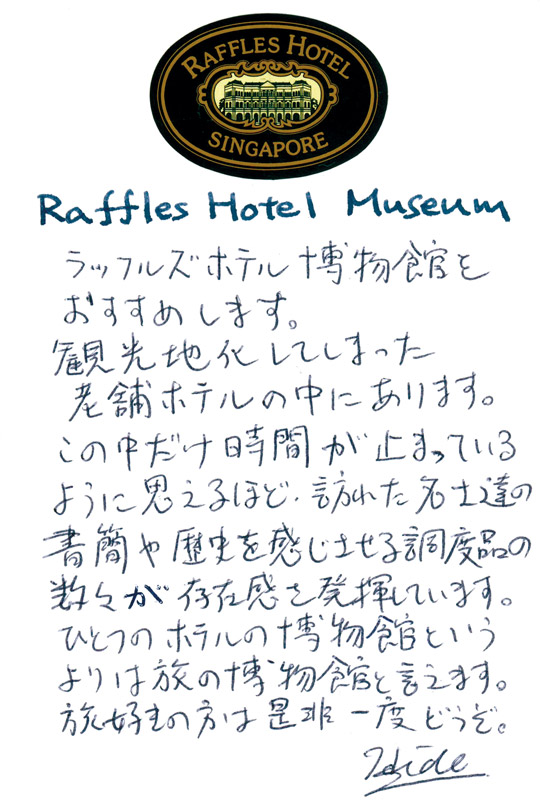 RAFFLES HOTEL
SINGAPORE
Raffles Hotel Museum
ラッフルズホテル博物館を
おすすめします。
観光地化してしまった
老舗ホテルの中にあります。
この中だけ時間が止まっている
ように思えるほど、訪れた名士達の
書簡や歴史を感じさせる調度品の
数々が存在感を発揮しています。
ひとつのホテルの博物館という
よりは旅の博物館と言えます。
旅好きの方は是非一度どうぞ。
Hide